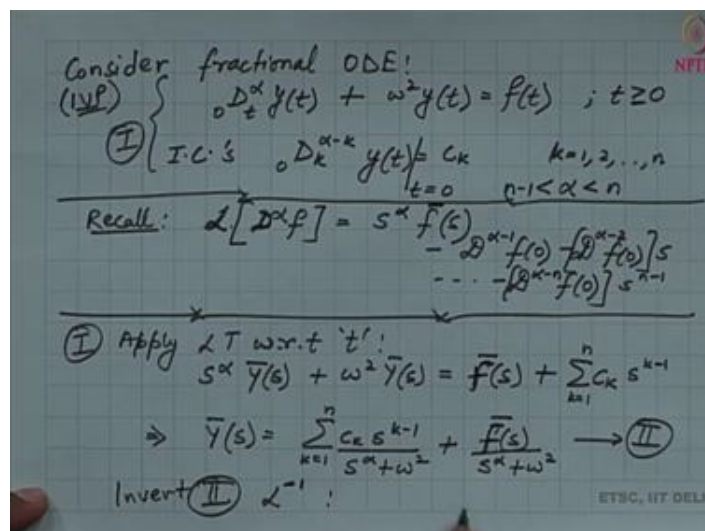 Consider fractional ODE!
(IVP) ₀D_t^α y(t) + ω²y(t) = f(t) ; t≥0
Ⓘ I.C.'s ₀D_k^{α-k} y(t)|_{t=0} = C_k k=1,2,..,n
n-1<α<n
Recall: ℒ[D^α f] = s^α f̄(s)
- D^{α-1}f(0) -[D^{α-2}f(0)]s
.... -[D^{α-n}f(0)] s^{n-1}
Ⓘ Apply ℒT w.r.t 't'!
s^α Ȳ(s) + ω² Ȳ(s) = F̄(s) + Σ_{k=1}^n C_k s^{k-1}
⇒ Ȳ(s) = Σ_{k=1}^n C_k s^{k-1}/(s^α+ω²) + F̄(s)/(s^α+ω²) → Ⅱ
Invert Ⅱ ℒ^{-1} :
ETSC, IIT DEL
NPT